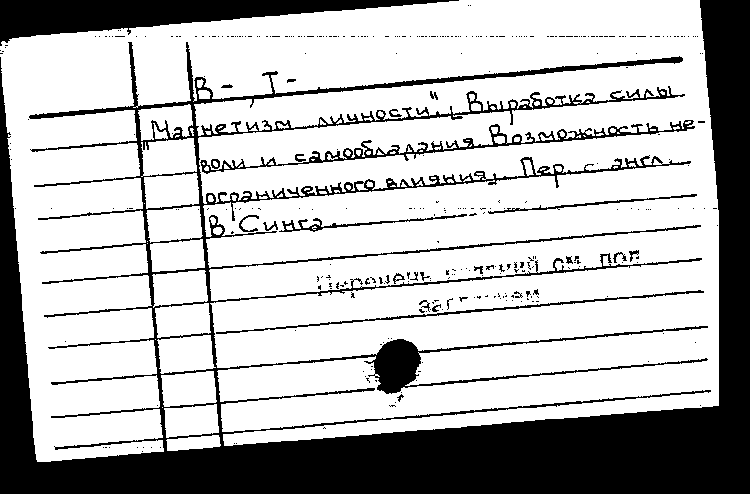 В-, Т-
„Магнетизм личности". [Выработка силы
воли и самообладания. Возможность не-
ограниченного влияния]. Пер. с англ.
В. Синга.
Перечень изданий см. под
заглавием